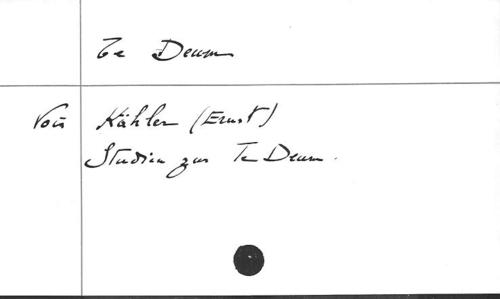 Te Deum
Voir Kähler (Ernst)
Studien zur Te Deum.